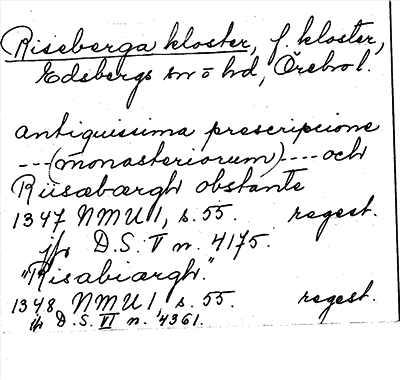 Riseberga kloster, f. kloster,
Edsbergs sn o hd, Örebro l.
antiquissima prescripcione
---(monasteriorum)---- och
Riisæbærgh obstante
1347 NMU 1, s. 55. regest.
jfr D.S. V n. 4175.
"Risabiærgh."
1348 NMU 1 s. 55. regest.
jfr D.S. VI n. 4361.